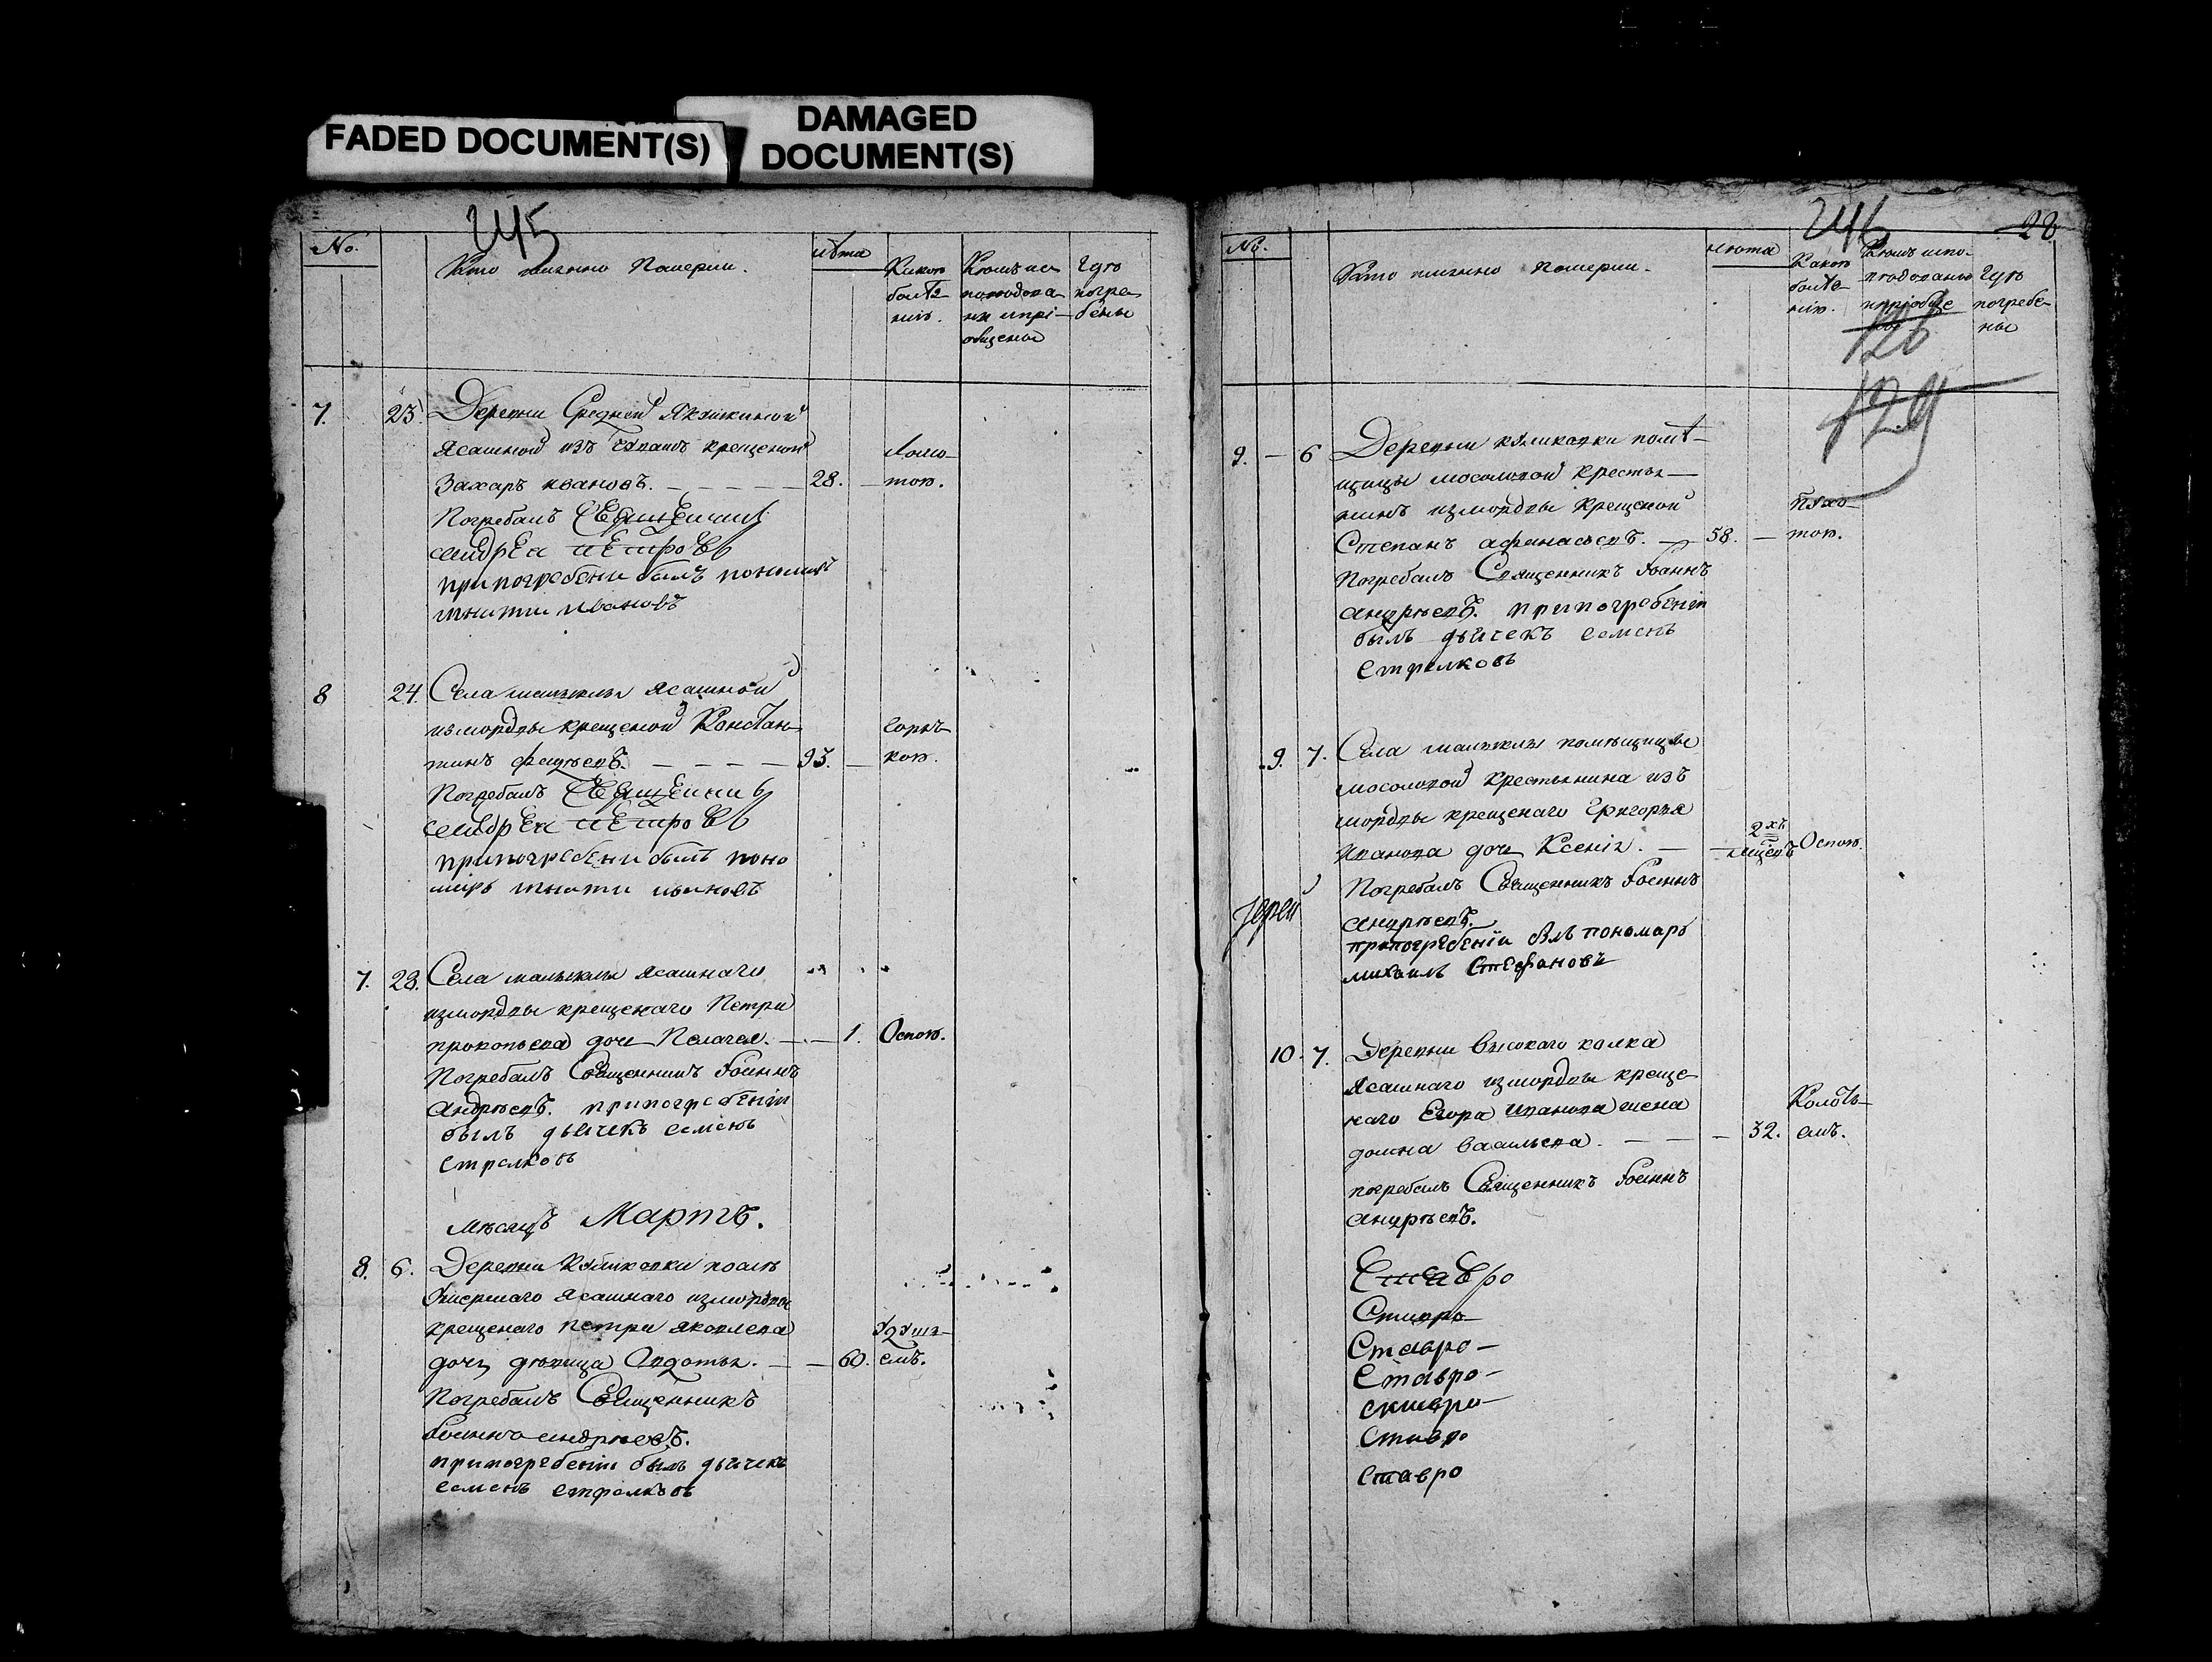 FADED DOCUMENT(S)
DAMAGED
DOCUMENT(S)
245
№.
Кто именно Померли.
лѣта
Какою
болѣз
нію.
Кѣмъ ис
поведова
ни и прі-
общены
Гдѣ
погре
бены
7.
23.
Деревни Средней Якушкиной
Ясашной изъ Чувашъ крещеной
Захаръ Ивановъ.
28.
Погребалъ Священникъ
Андрей Петровъ
при погребени былъ пономарь
Игнати Ивановъ
8
24.
Села Малыклы Ясашной
из мордвы крещеной Констан
тинъ Фадѣевъ.
93.
Горяч
кою.
Погребалъ Священникъ
Андрей Петровъ
при погребени былъ поно
марь Игнати Ивановъ
7.
28.
Села Малыклы Ясашнаго
из мордвы крещенаго Петра
Прокопьева дочь Пелагея.
1.
Оспою.
Погребалъ Священникъ Иоаннъ
Андрѣевъ. при погребеніи
былъ дьячекъ Семенъ
Стрелковъ
Мѣсяцъ Мартъ.
8.
6.
Деревни
Ясашнаго из мордвы
крещенаго Петра Яковлева
дочь дѣвица Авдотья.
60.
Удуш
емъ.
Погребалъ Священникъ
Иоаннъ Андрѣевъ.
при погребении былъ дьячекъ
Семенъ Стрелковъ
246
28
№.
Кто именно Померли.
лѣта
Какою
болѣз
нію.
Кѣмъ испо-
вѣдованы
и приобще
ны
Гдѣ
погребе-
ны
126
129
9.
6
Деревни помѣ-
щицы Мосоловой крестья-
нинъ из мордвы крещеной
Степанъ Афанасьевъ.
58.
Погребалъ Священникъ Иоаннъ
Андрѣевъ. при погребеніи
былъ дьячекъ Семенъ
Стрелковъ
9.
7.
Села Малыклы помѣщицы
Мосоловой крестьянина изъ
мордвы крещенаго Григорья
Иванова дочь Ксенія.
2хъ
мѣсяцевъ
Оспою.
Погребалъ Священникъ Иоаннъ
Иерей
Андрѣевъ.
при погребении былъ пономарь
Михаилъ Стефановъ
10
7.
Деревни Высокаго колка
Ясашнаго из мордвы креще-
наго Егора Иванова жена
Домна Васильева.
32.
Колоть-
емъ.
погребалъ Священникъ Иоаннъ
Андрѣевъ.
Ставро
Ставро
Ставро
Ставро
Ставро
Ставро
Ставро